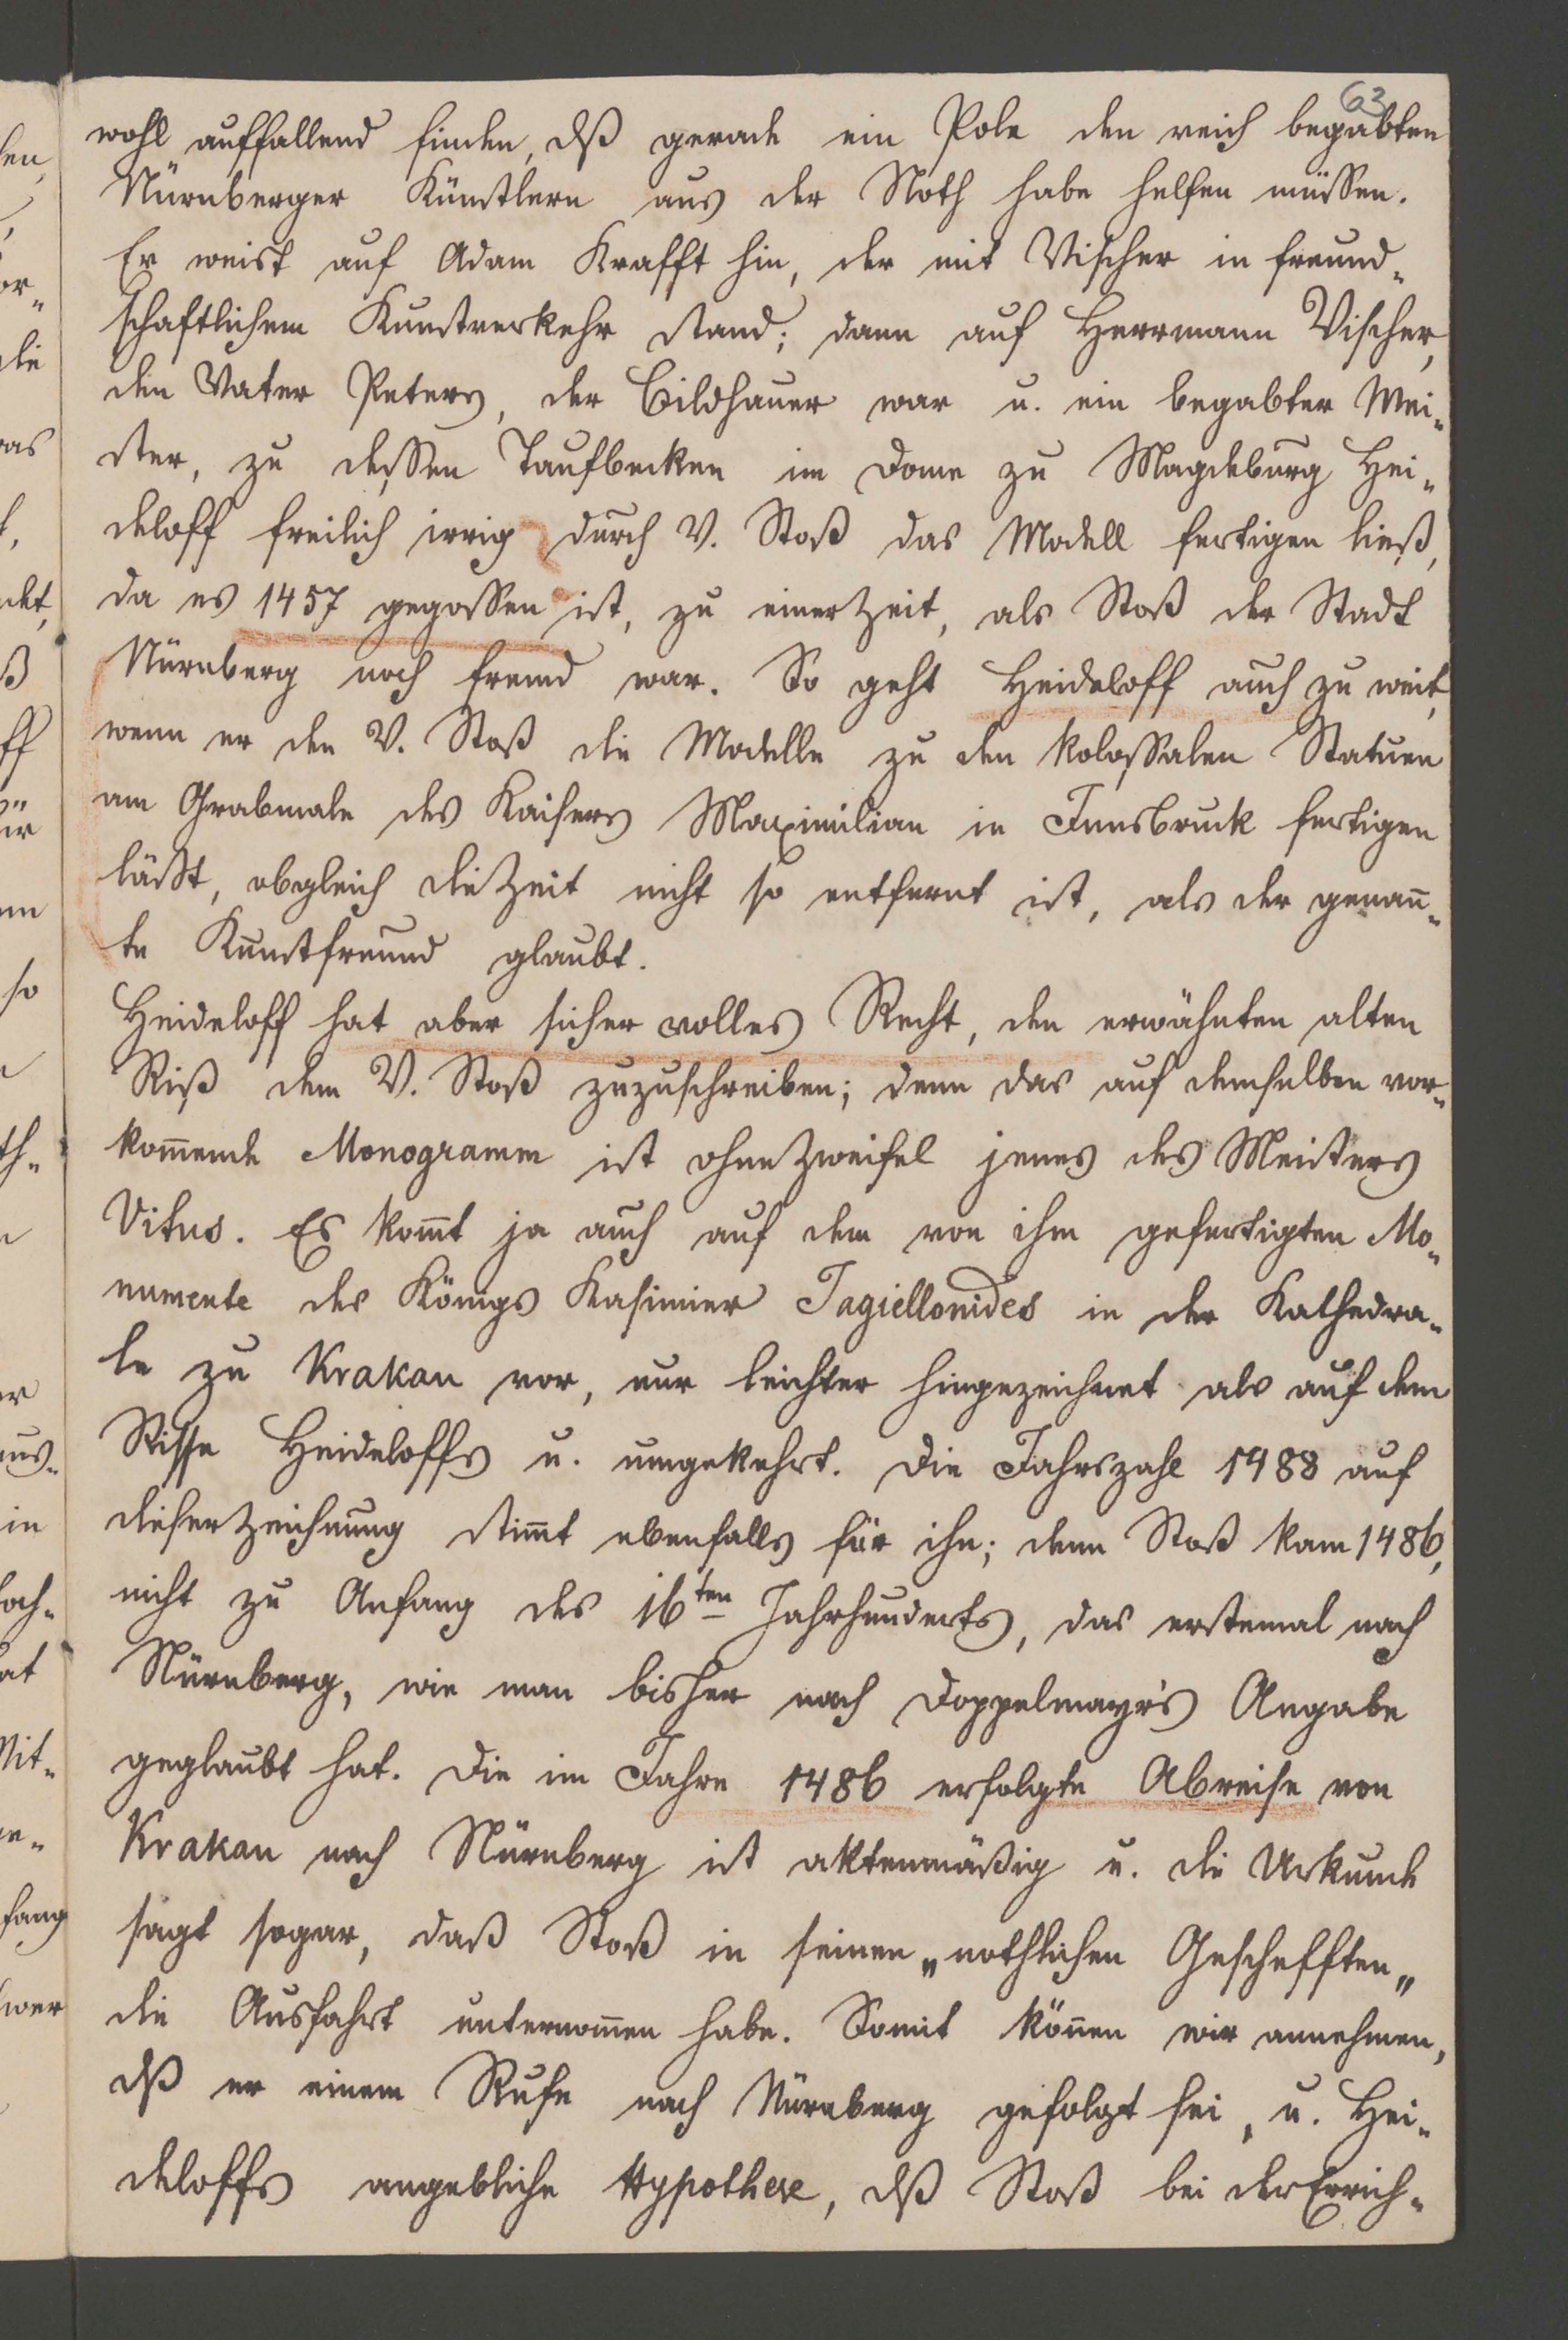 63
wohl auffallend finden, dß gerade ein Pole den reich begabten
Nürnberger Künstlern aus der Noth habe helfen müssen.
Er weist auf Adam Krafft hin, der mit Vischer in freund-
schaftlichem Kunstverkehr stand; dann auf Herrmann Vischer,
den Vater Peters, der Bildhauer war u. ein begabter Mei-
ster, zu dessen Taufbecken im Dome zu Magdeburg Hei-
deloff freilich irrig durch V. Stoß das Modell fertigen ließ,
da es 1457 gegossen ist, zu einer Zeit, als Stoß der Stadt
Nürnberg noch fremd war. So geht Heideloff auch zu weit,
wenn er den V. Stoß die Modelle zu den kolossalen Statuen
am Grabmale des Kaisers Maximilian in Innsbruck fertigen
läßt, obgleich die Zeit nicht so entfernt ist, als der genan̄-
te Kunstfreund glaubt.
Heideloff hat aber sicher volles Recht, den erwähnten alten
Riß dem V. Stoß zuzuschreiben; denn das auf demselben vor-
kom̄ende Monogramm ist ohne Zweifel jenes des Meisters
Vitus. Es kom̄t ja auch auf dem von ihm gefertigten Mo-
numente des Königs Kasimier Jagiellonides in der Kathedra-
le zu Krakau vor, nur leichter hingezeichnet als auf dem
Risse Heideloffs u. umgekehrt. Die Jahrszahl 1488 auf
dieser Zeichnung stim̄t ebenfalls für ihn; denn Stoß kam 1486,
nicht zu Anfang des 16ten Jahrhunderts, das erstemal nach
Nürnberg, wie man bisher nach Doppelmayr's Angabe
geglaubt hat. Die im Jahre 1486 erfolgte Abreise von
Krakau nach Nürnberg ist aktenmäßig u. die Urkunde
sagt sogar, daß Stoß in seinen „nothlichen Geschefften„
die Ausfahrt unternom̄en habe. Somit kön̄en wir annehmen,
dß er einem Rufe nach Nürnberg gefolgt sei, u. Hei-
deloffs angebliche Hypothese, dß Stoß bei der Errich-